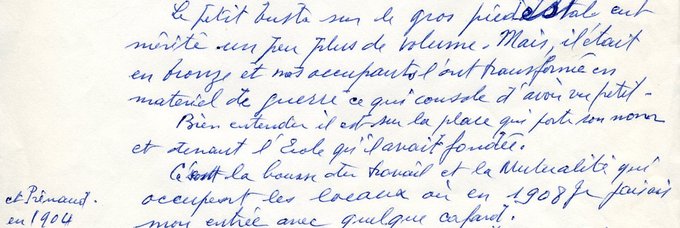 Le petit buste sur le gros piédestale eut
mérité un peu plus de volume. Mais, il était
en bronze et nos occupants l'ont transformé en
materiel de guerre ce qui console d'avoir vu petit -
Bien entendu il est sur la place qui porte son nom
et devant l'Ecole qu'il avait fondée.
C'est la bourse du travail et la Mutualité qui
occupent les locaux où en 1908 je faisais
et Prénaud.
en 1904
mon entrée avec quelque cafard.